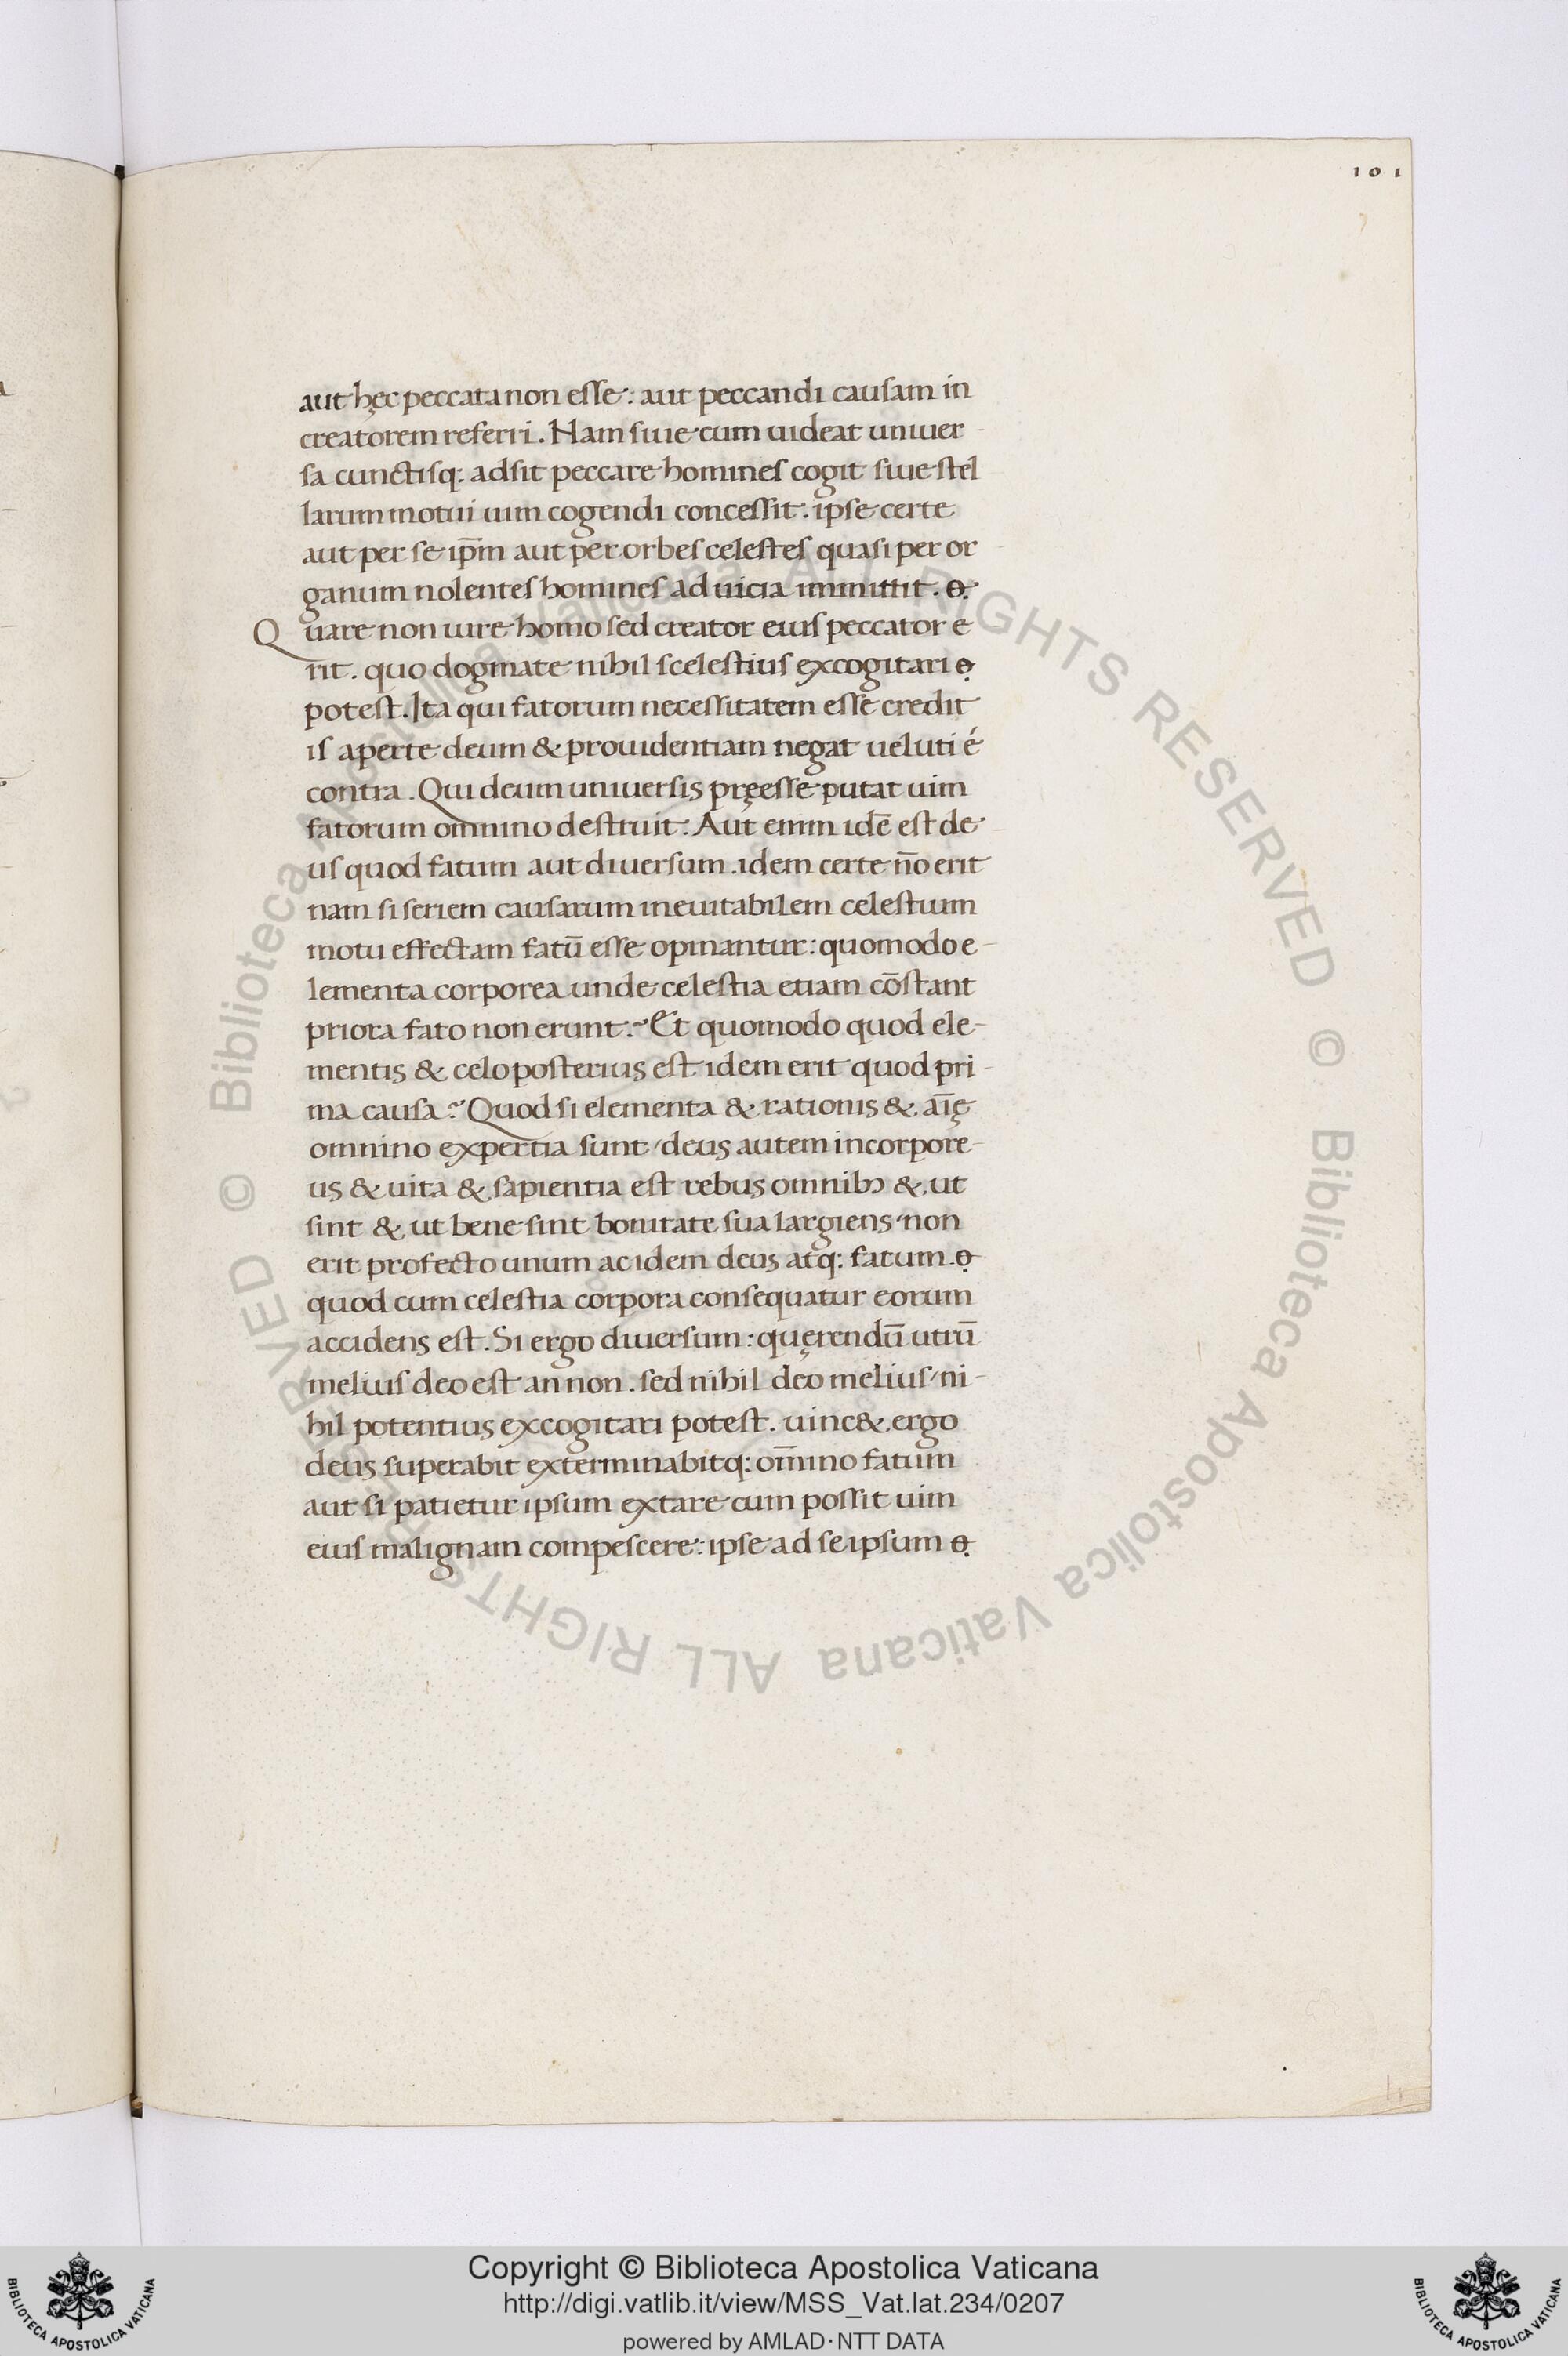 101
aut hęc peccata non esse: aut peccandi causam in
creatorem referri. Nam siue cum uideat uniuer
sa cunctisq: adsit peccare homines cogit siue stel
larum motui uim cogendi concessit. ipse certe
aut per se ip̄m aut per orbes celestes quasi per or
ganum nolentes homines ad uicia immittit.
Quare non iure homo sed creator eius peccator e
rit. quo dogmate nihil scelestius excogitari
potest. Ita qui fatorum necessitatem esse credit
is aperte deum & prouidentiam negat ueluti é
contra. Qui deum uniuersis pręesse putat uim
fatorum omnino destruit: Aut enim idē est de
us quod fatum aut diuersum. idem certe nō erit
nam si seriem causarum ineuitabilem celestium
motu effectam fatū esse opinantur: quomodo e-
lementa corporea unde celestia etiam cōstant
priora fato non erunt? Et quomodo quod ele-
mentis & celo posterius est idem erit quod pri-
ma causa? Quod si elementa & rationis & aīę
omnino expertia sunt/deus autem incorpore-
us & uita & sapientia est rebus omnibꝫ & ut
sint & ut bene sint bonitate sua largiens/non
erit profecto unum ac idem deus atq: fatum.
quod cum celestia corpora consequatur eorum
accidens est. Si ergo diuersum: quęrendū utrū
melius deo est an non. sed nihil deo melius/ni-
hil potentius excogitari potest. uinc& ergo
deus superabit exterminabitq: om̄ino fatum
aut si patietur ipsum extare cum possit uim
eius malignam compescere: ipse ad se ipsum
© Biblioteca Apostolica Vaticana ALL RIGHTS RESERVED © Biblioteca Apostolica Vaticana ALL RIGHTS RESERVED
Copyright © Biblioteca Apostolica Vaticana
http://digi.vatlib.it/view/MSS_Vat.lat.234/0207
powered by AMLAD·NTT DATA
BIBLIOTECA APOSTOLICA VATICANA
BIBLIOTECA APOSTOLICA VATICANA